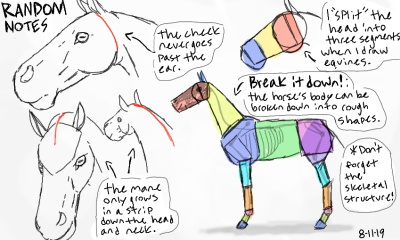 RANDOM
NOTES
the cheek
never goes
past the
ear.
I "split" the
head into
three segments
when I draw
equines.
Break it down!:
the horse's body can be
broken down into rough
shapes.
the mane
only grows
in a strip
down the head
and neck.
*Don't
forget
the
skeletal
structure!
8-11-19